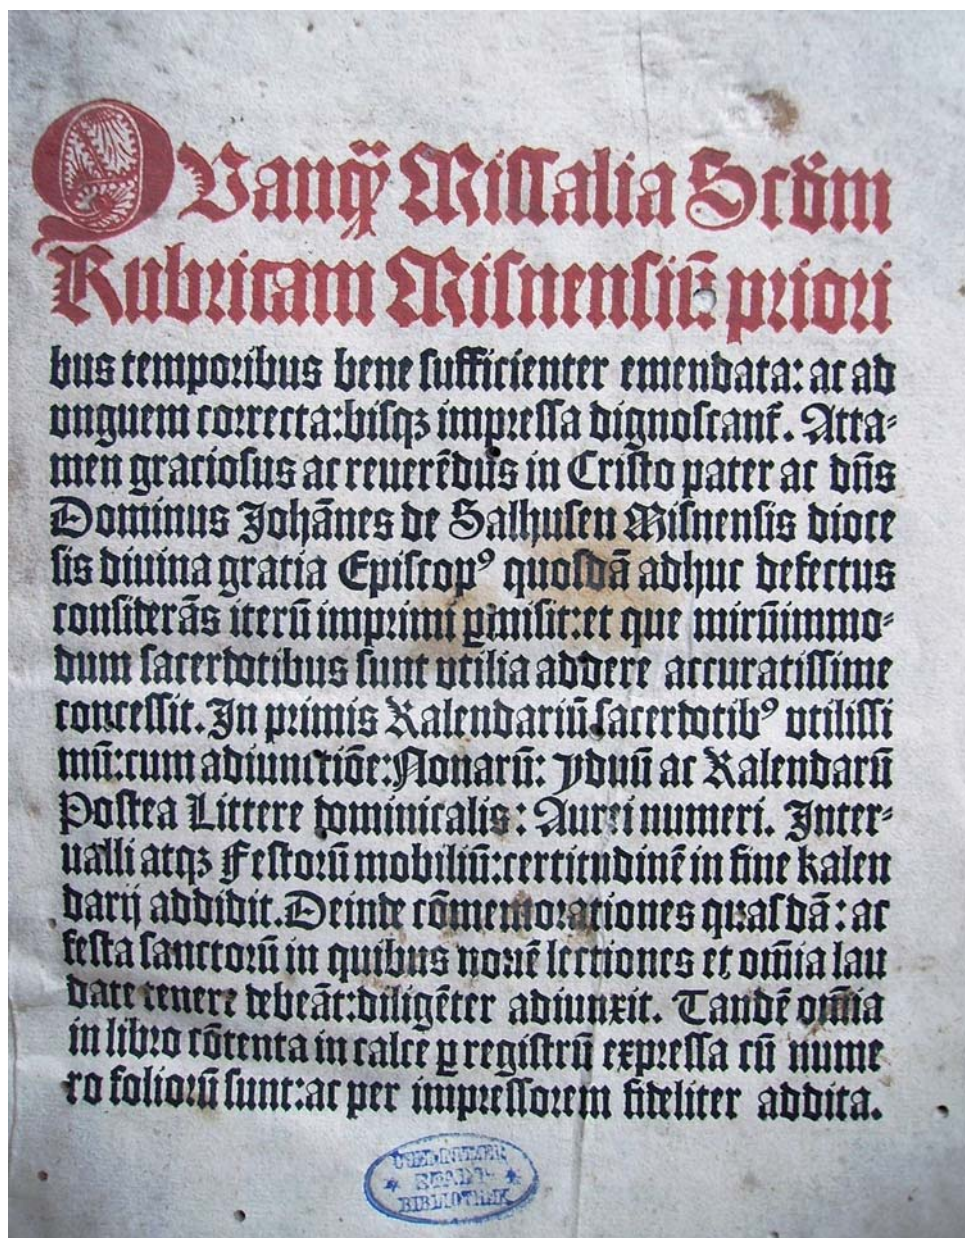 QVanqȝ Missalia Scdm
Rubricam Misnensiū: priori
bus temporibus bene sufficienter emendata: ac ad
vnguem correcta:bisqȝ impressa dignoscant᷑. Atta⸗
men graciosus ac reuerēdus in Cristo pater ac dn̄s
Dominus Johānes de Salhusen Misnensis dioce
sis diuina gratia Episcopꝰ quosdā adhuc defectus
considerās iterū imprimi ꝑmisit:et que mirūimmo⸗
dum sacerdotibus sunt vtilia addere accuratissime
concessit. In primis Kalendariū sacerdotibꝰ vtilissi
mū:cum adiunctiōe:Nonarū: ydnū ac Kalendarū
Postea Littere dominicalis: Aurei numeri. Inter⸗
ualli atqȝ Festorū mobiliū:certitudinē in fine kalen
darij addidit. Deinde cōmemorationes quasdā: ac
festa sanctorū in quibus nouē lectiones et om̄ia lau
date tenere debeāt:diligēter adiunxit. Tandē om̄ia
in libro cōtenta in calce ꝑ registrū expressa cū nume
ro foliorū sunt:ac per impressorem fideliter addita.
STADT-
BIBLIOTHEK